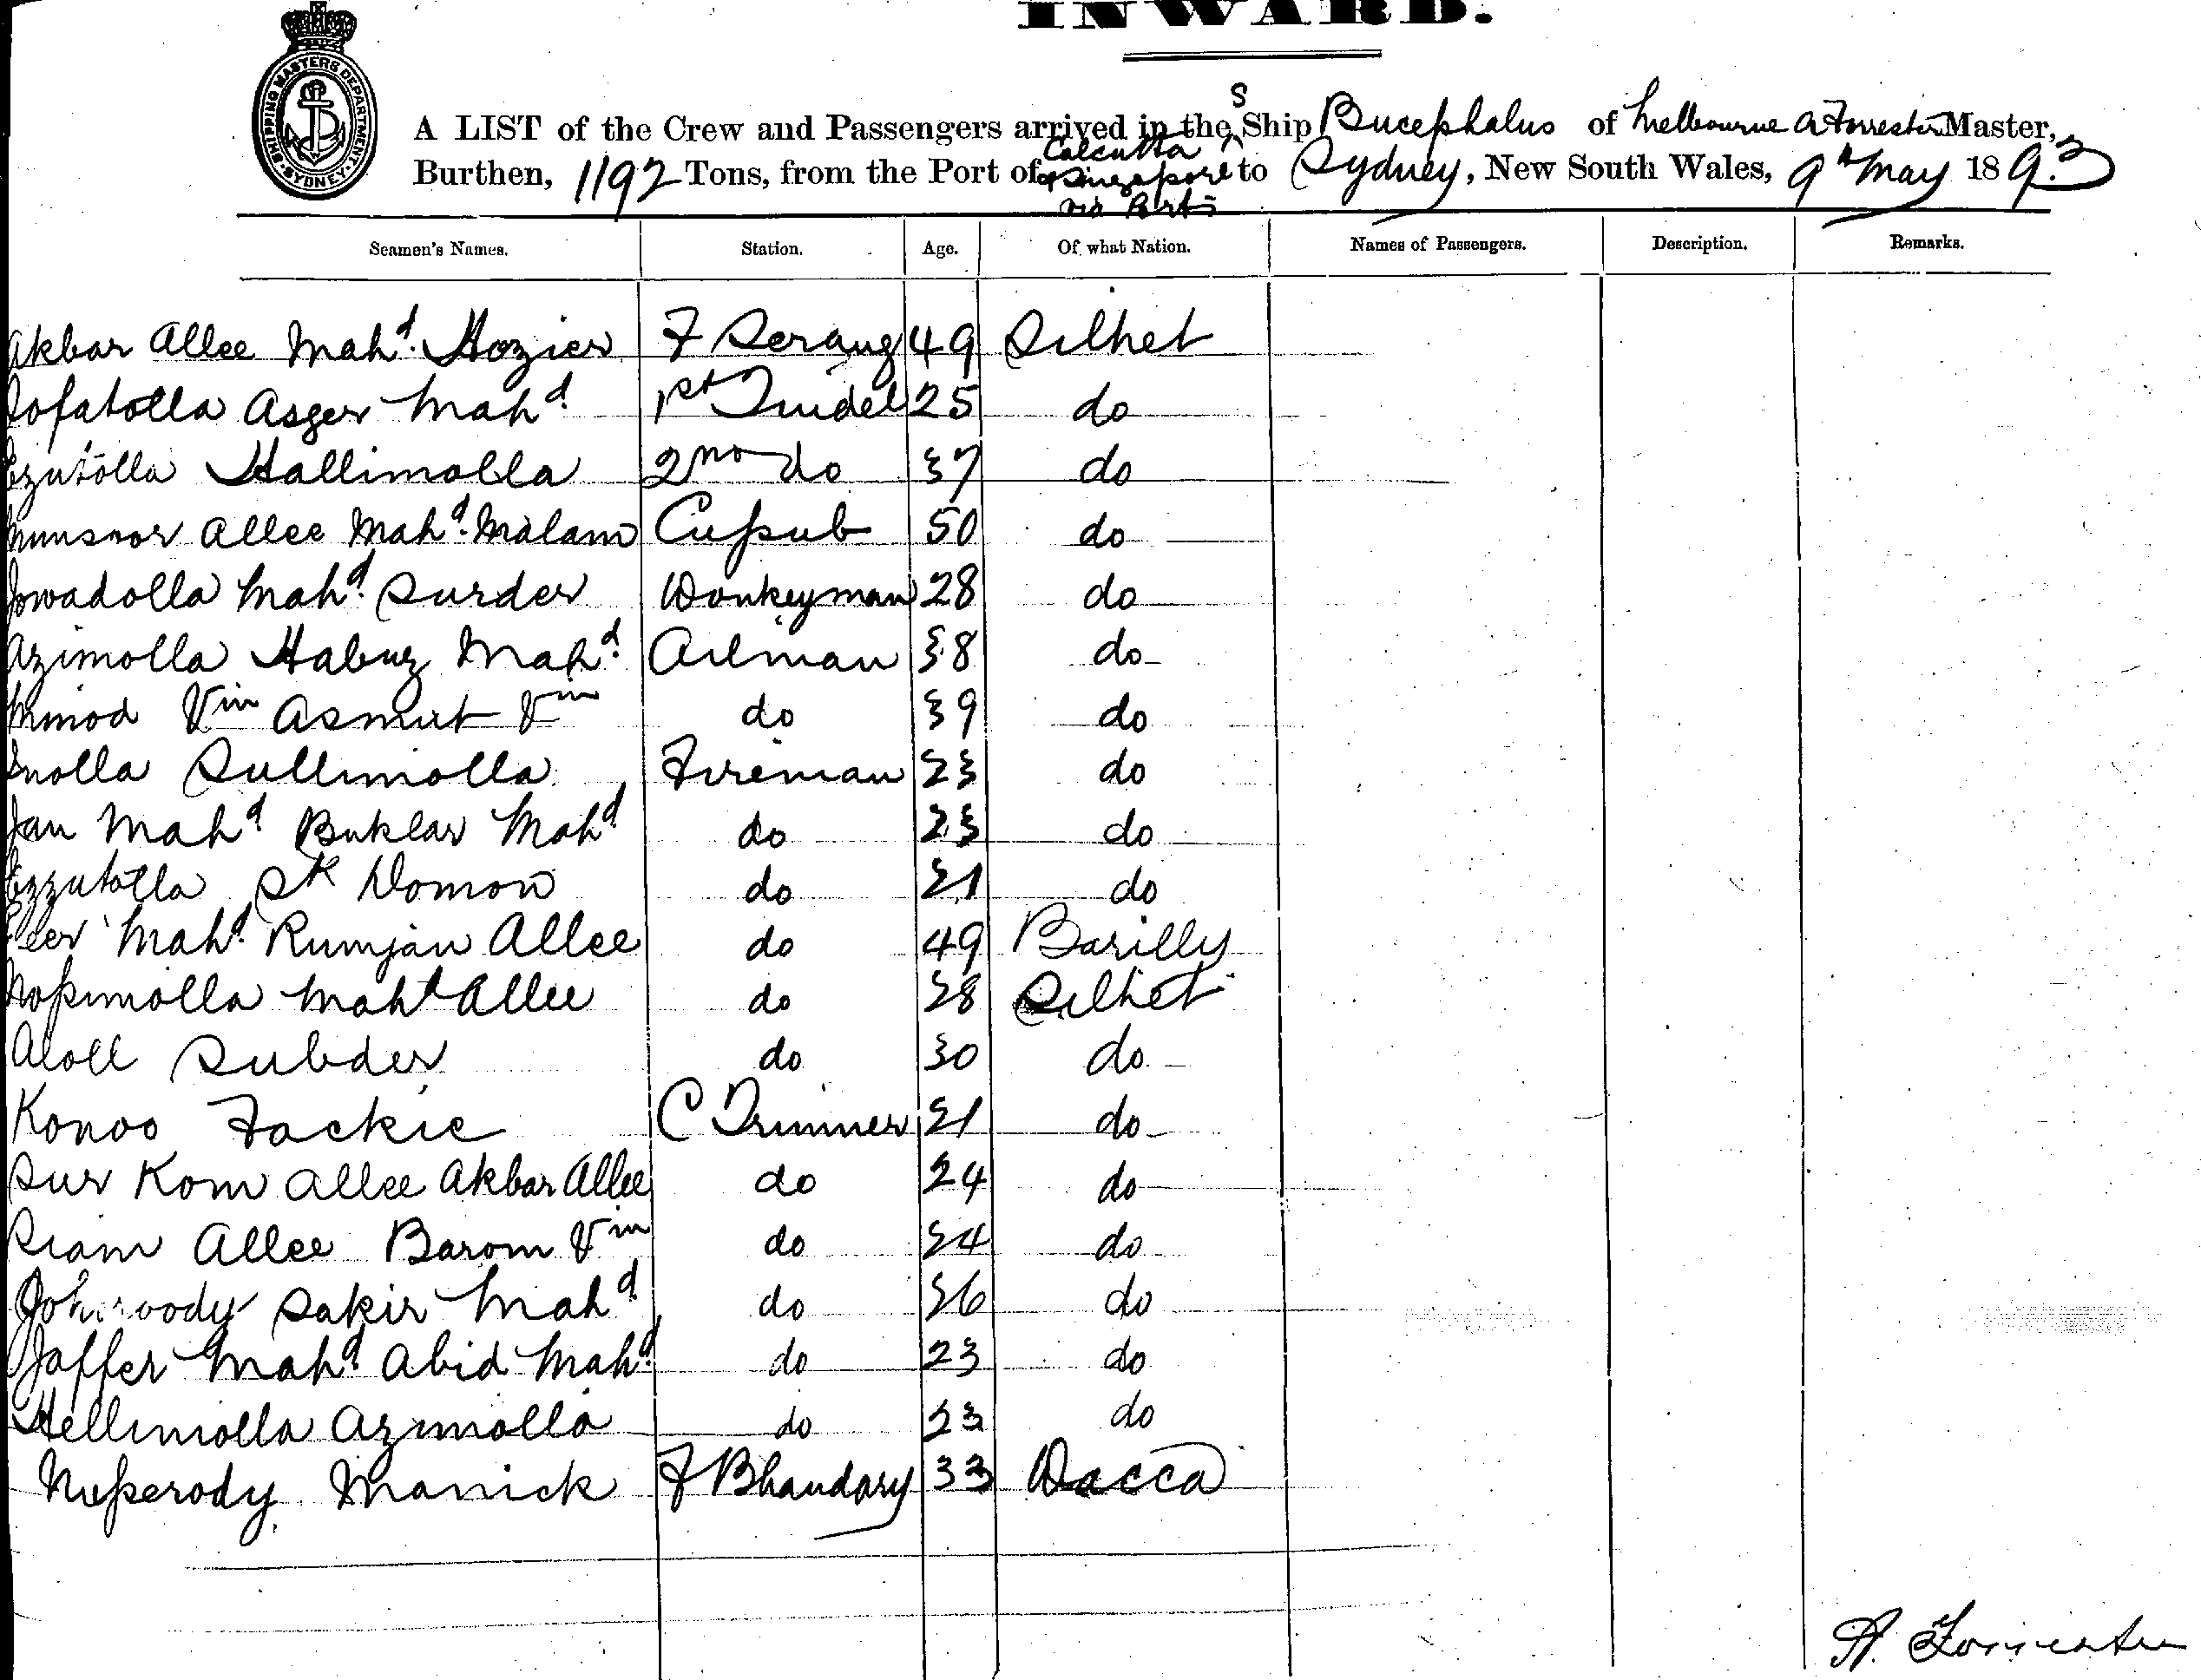 INWARD.
SHIPPING MASTERS DEPARTMENT SYDNEY
A LIST of the Crew and Passengers arrived in the S Ship Bucephalus of Melbourne A Forrester Master,
Burthen, 1192 Tons, from the Port of Calcutta & Singapore via Ports to Sydney, New South Wales, 9th May 1893
Seamen's Names. Station. Age. Of what Nation. Names of Passengers. Description. Remarks.
Akbar Allee Mahd. Hozier F Serang 49 Silhet
Asger Mahd. 1st Tindel 25 do
Hallimolla 2nd do 37 do
Allee Mahd. Malam Cussub 50 do
Mahd. Surder Donkeyman 28 do
Azimolla Habuz Mahd. Oilman 38 do
Vin Asmut Vin do 39 do
Sullimolla Fireman 23 do
Jan Mahd. Buklar Mahd. do 23 do
Ezzutolla Sk Domon do 21 do
Mahd. Rumjan Allee do 49 Barilly
Mahd Allee do 28 Silhet
Aloll Subder do 30 do
Konoo Fackie C Trimmer 21 do
Sur Kom Allee Akbar Allee do 24 do
Siam Allee Barom Vin do 24 do
Sakir Mahd. do 26 do
Jaffer Mahd. Abid Mahd. do 23 do
Hellimolla Azimolla do 23 do
Nusserody Manick F Bhandary 33 Dacca
A. Forrester